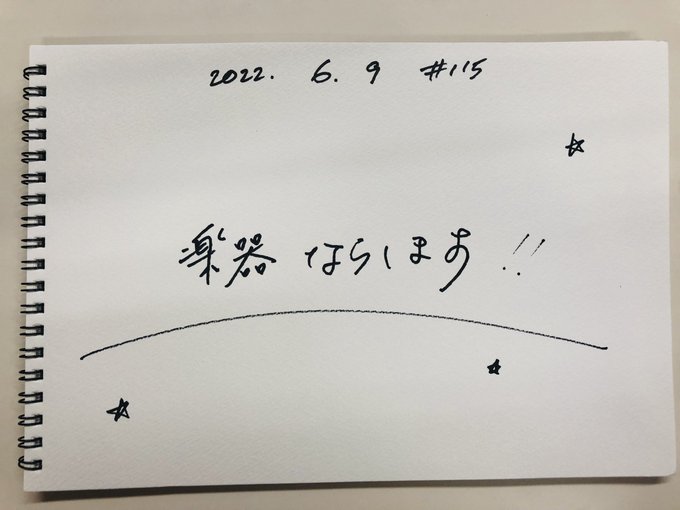 2022. 6. 9 #115
楽器 ならします!!